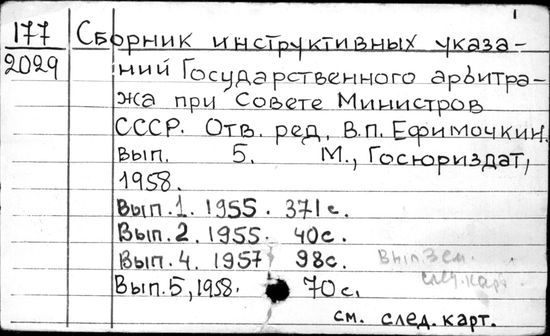 177
2029
Сборник инструктивных указа-
ний Государственного арбитра-
жа при Совете Министров
СССР. Отв. ред. В.П. Ефимочкин.
Вып. 5. М., Госюриздат,
1958.
Вып. 1. 1955. 371 с.
Вып. 2. 1955. 40с.
Вып. 4. 1957 98с.
Вып. 3 см.
след. карт.
Вып. 5, 1958. 70 с.
см. след. карт.